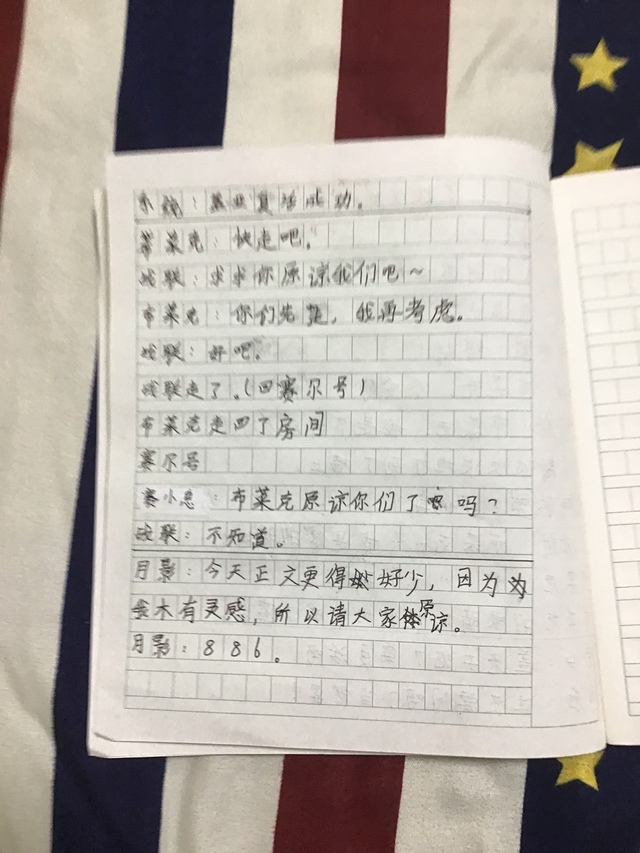 系统：盖亚复活成功。
布莱克：快走吧。
战联：求求你原谅我们吧～
布莱克：你们先走，我再考虑。
战联：好吧。
战联走了。（回赛尔号）
布莱克走回了房间
赛尔号
赛小息：布莱克原谅你们了吗？
战联：不知道。
月影：今天正文更得好少，因为
木有灵感，所以请大家原谅。
月影：886。